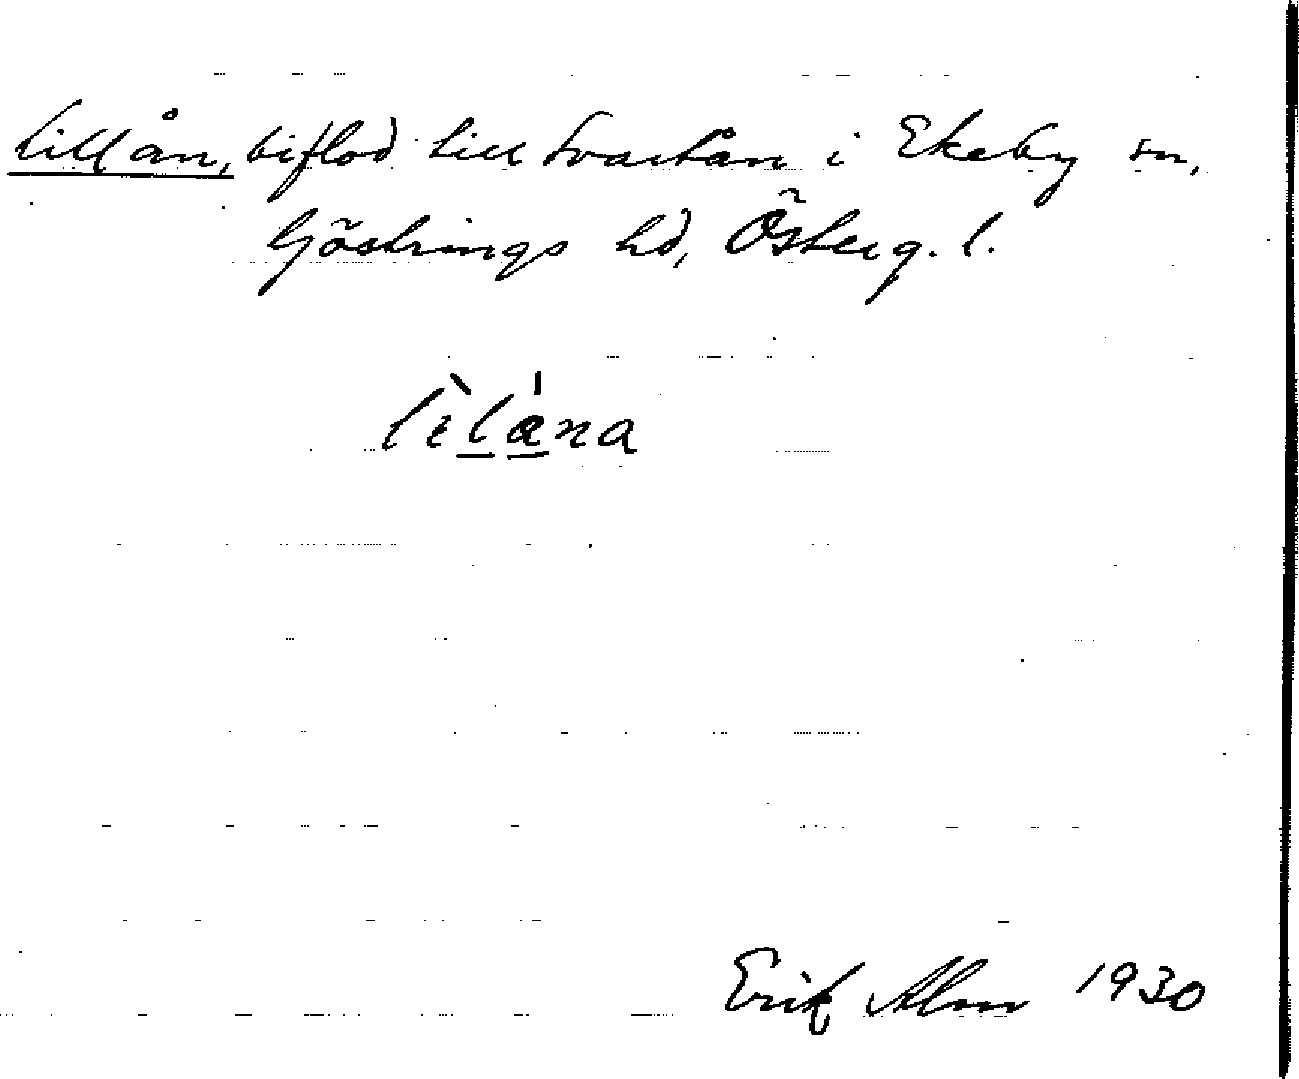 Lillån, biflod till Svartån i Ekeby sn,
Göstrings hd, Österg. l.
lìlána
Erik Alm 1930